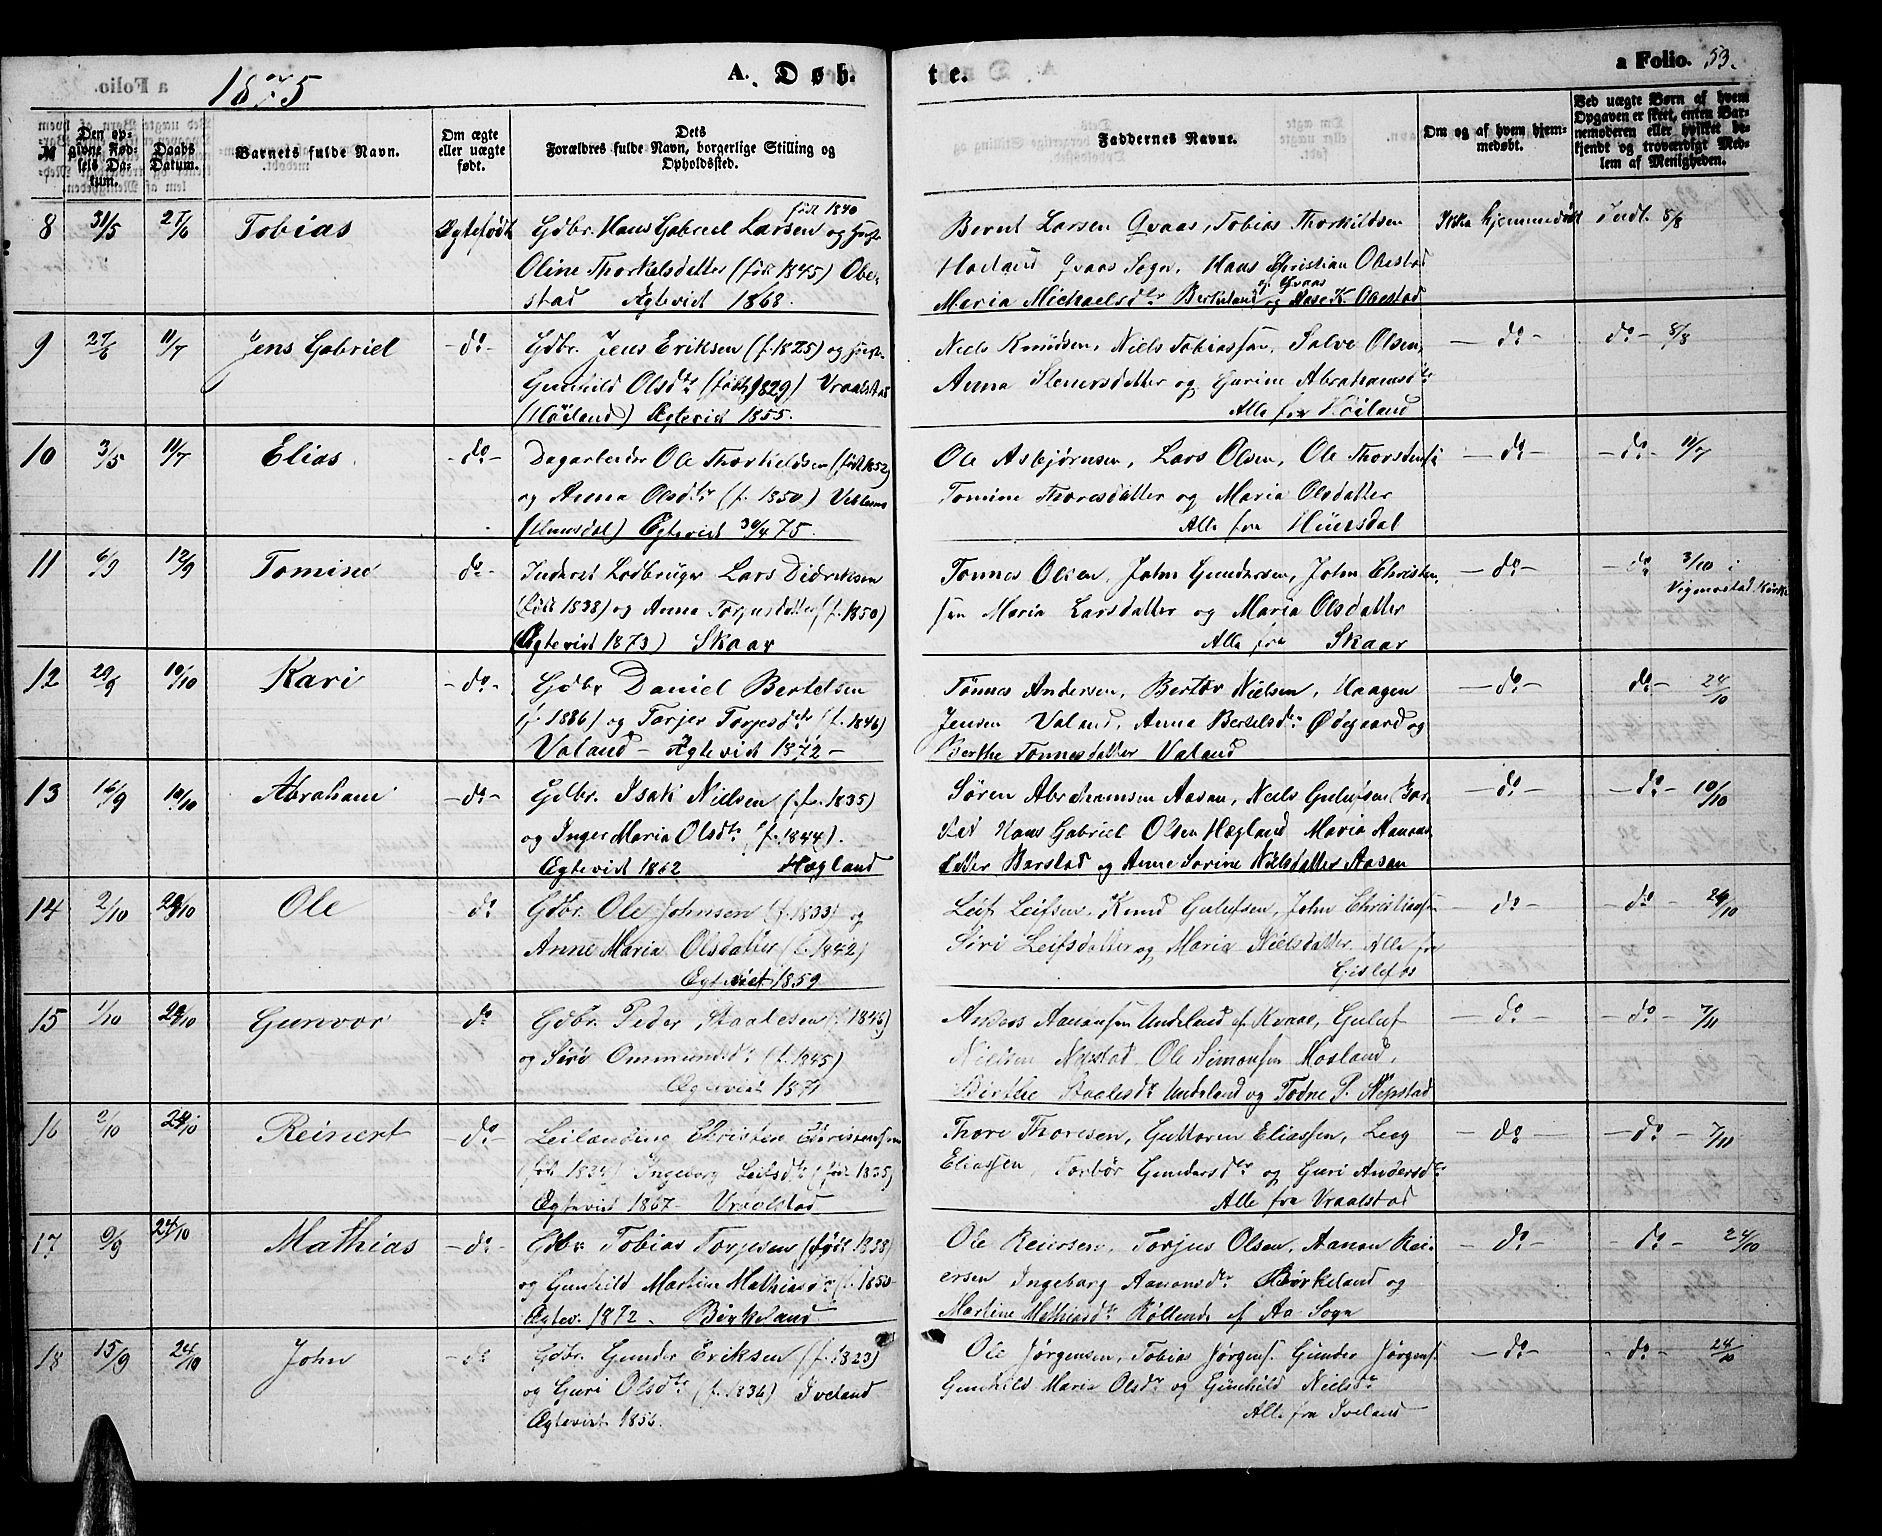 1875
A. Døb-
te.
a Folio. 53.
№
Den opgivne Fødsels Datum.
Daabs Datum.
Barnets fulde Navn.
Om ægte eller uægte født.
Dets Forældres fulde Navn, borgerlige Stilling og Opholdssted.
Faddernes Navne.
Om og af hvem hjemmedøbt.
Ved uægte Børn af hvem Opgaven er skeet, enten Barnemoderen eller hvilket bekjendt og troværdigt Medlem af Menigheden.
8 31/5 27/6 Tobias Ægtefødt Gdbr. Hans Gabriel Larsen født 1840 og Hustr.
Oline Thorkelsdatter (født 1845) Obe-
stad Ægteviet 1868.
Bernt Larsen Qvaas, Tobias Thorkildsen
Haaland Qvaas Sogn, Hans Christian Obestad
Maria Michaelsdtr Birkeland af Qvaas og Aase K. Obestad
Ikke hjemmedøbt Indt. 8/8
9 27/6 11/7 Jens Gabriel do Gdbr. Jens Eriksen (f. 1825) og Hustr.
Gunhild Olsdtr (født 1829) Vraalstad
(Høiland) Ægteviet 1855.
Niels Knudsen, Niels Tobiassen, Salve Olsen,
Anna Stenersdatter og Gurine Abrahamsdtr
Alle fra Høiland
do do 8/8
10 3/5 11/7 Elias do Dagarbeider Ole Thorkeldsen (født 1852)
og Anna Olsdtr (f. 1850)
Ægteviet 30/4 75.
Ole Asbjørnsen, Lars Olsen, Ole Thorstens.
Tomine Thoresdatter og Maria Olsdatter
Alle fra
do do 11/7
11 6/9 12/9 Tomine do Inderst Lodbruger Lars Didriksen
(født 1838) og Anna Torjusdatter (f. 1850)
(Ægteviet 1873) Skaar
Tønnes Olsen, John Gundersen, John Christen-
sen Maria Larsdatter og Maria Olsdatter
Alle fra Skaar
do do 3/10 i
Vigmostad Kirke
12 20/9 10/10 Kari do Gdbr Daniel Bertelsen
(f. 1836) og Torjer Torjesdtr (f. 1846)
Valand - Ægteviet 1872 -
Tønnes Andersen, Bertor Nielsen, Haagen
Jensen Valand, Anna Bertelsdtr Ødegaard og
Berthe Tønnesdatter Valand
do do 24/10
13 16/9 10/10 Abraham do Gdbr. Isak Nielsen (f. 1835)
og Inger Maria Olsdtr (f. 1844).
Ægteviet 1862 Hægland
Søren Abrahamsen Aasan, Niels Gulufsen Bar-
stad Hans Gabriel Olsen Hægland Maria Aanons-
datter Barstad og Anne Sorine Nielsdatter Aasan
do do 10/10
14 2/10 24/10 Ole do Gdbr. Ole Johnsen (f. 1833) og
Anne Maria Olsdatter (f. 1842)
Ægteviet 1859
Leif Leifsen, Knud Gulufsen, John Christiansen
Siri Leifsdatter og Maria Nielsdatter. Alle fra
Gislefos
do do 24/10
15 1/10 24/10 Gunvor do Gdbr. Peder Staalesen (f. 1846)
og Siri Ommundsdtr (f. 1845)
Ægteviet 1871
Anders Aanonsen Underland af Kvaas, Guluf
Nielsen Nepstad, Ole Simonsen Mosland,
Birthe Staalesdtr Underland og Todne P. Nepstad
do do 7/11
16 2/10 24/10 Reinert do Leilænding Christen Christensen
Ingeborg Leifsdtr (født 1835)
Ægteviet 1867 - Vraalstad
Thore Thoresen, Guttorm Eliassen, Leeg
Eliassen, Torbør Gundersdtr og Guri Andersdtr
Alle fra Vraalstad
do do 7/11
17 9/9 24/10 Mathias do Gdbr Tobias Torjesen (født 1838)
og Gunhild Martine Mathiasdtr (f. 1850)
Ægtev. 1872. Birkeland
Ole Reiersen, Torjus Olsen, Aanon Rei-
ersen Ingeborg Aanonsdtr Birkeland og
Martine Mathiasdtr Røllend af Aa Sogn
do do 24/10
18 15/9 24/10 John do Gdbr. Gunder Eriksen (f. 1823)
og Guri Olsdtr (f. 1836) Iveland
Ægteviet 1856.
Ole Jørgensen, Tobias Jørgens. Gunder Jørgens.
Gunhild Maria Olsdtr og Gunhild Nielsdtr
Alle fra Iveland
do do 24/10